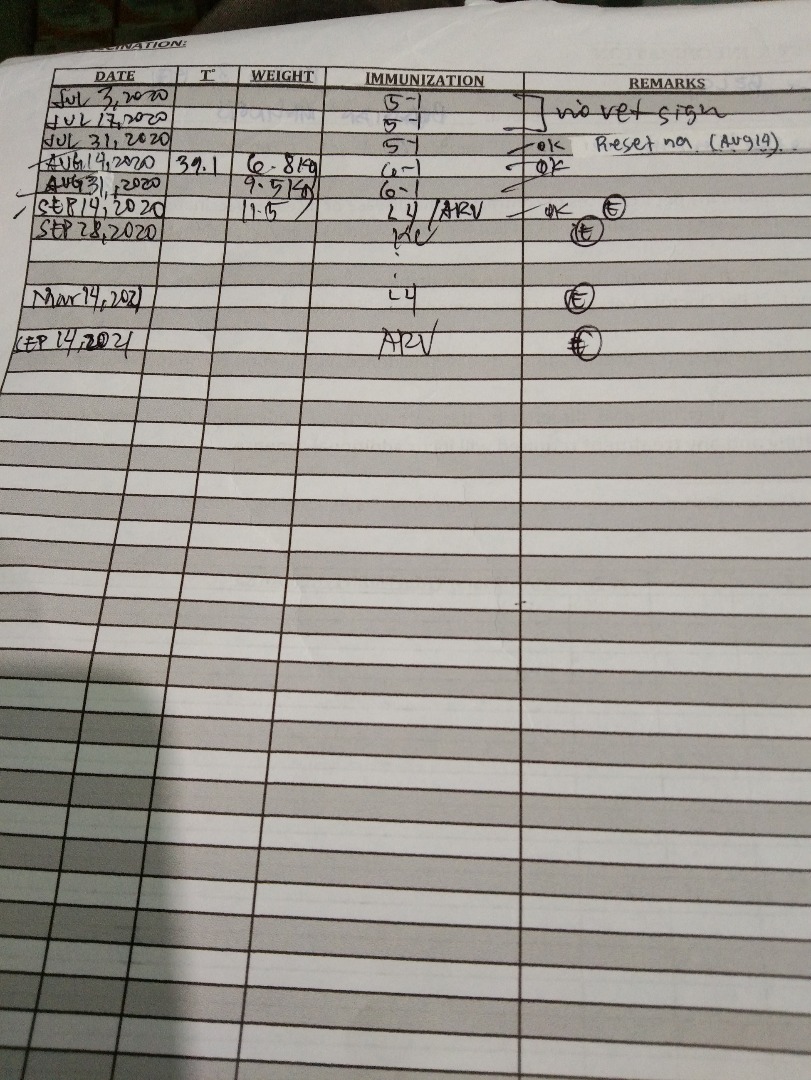 CINATION:
DATE T° WEIGHT IMMUNIZATION REMARKS
JUL 3, 2020 5-1 no vet sign
JUL 17, 2020 5-1
JUL 31, 2020 5-1 OK Preset na. (Aug 14)
AUG 14, 2020 39.1 6.8kg 6-1 OK
AUG 31, 2020 9.5kg 6-1
SEP 14, 2020 11.5 L4/ARV OK E
SEP 28, 2020 KC E
Mar 14, 2021 L4 E
SEP 14, 2021 ARV E